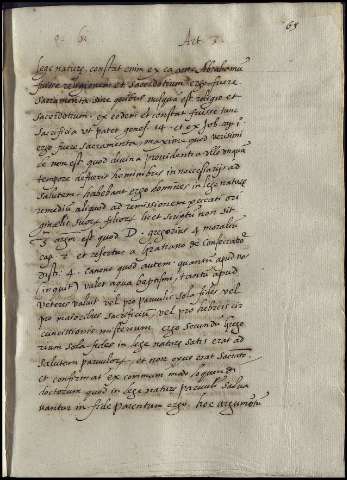 Act. 3. 68
lege naturę, constat enim ex ca. ante Abrahamū
fuisse religionem et sacerdotium ergo fuere
sacramenta sine quibus nusquā est religio et
sacerdotium. ex eodem et constat fuisse tunc
sacrificia ut patet genes. 14. et ex Job. cap. 1.
ergo fuere sacramenta maxime quod verisimi
le non est quod divina providentia ullo unquā
tempore defuerit hominibus in necessarijs ad
salutem. habebant ergo homines in lege naturę
remediū aliquod ad remissionem peccati ori
ginalis suorū filiorū licet scriptū non sit
3. argm. est quod D. gregorius 4 moraliū
cap. 2. et refertur a gratiano de consecratōe
dist. 4. canone quod autem quantū apud nos
(inquit) valet aqua baptismi, tantū apud
veteres valuit vel pro parvulis sola fides vel
pro maioribus sacrificiū vel pro hebreis cir
cuncissionis misterium. ergo secundū grego
rium sola fides in lege naturę satis erat ad
salutem parvulorū, et non opus erat sacrātō
et confirmat ex communi modo loquendi
doctorum quod in lege naturę parvuli salva
vantur in fide parentum ergo. hoc argumētū